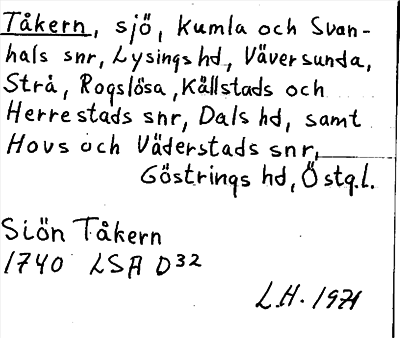 Tåkern, sjö, Kumla och Svan-
hals snr, Lysings hd, Väversunda,
Strå, Rogslösa, Källstads och
Herrestads snr, Dals hd, samt
Hovs och Väderstads snr,
Göstrings hd, Östg.l.
Siön Tåkern
1740 LSA D32
L.H. 1971